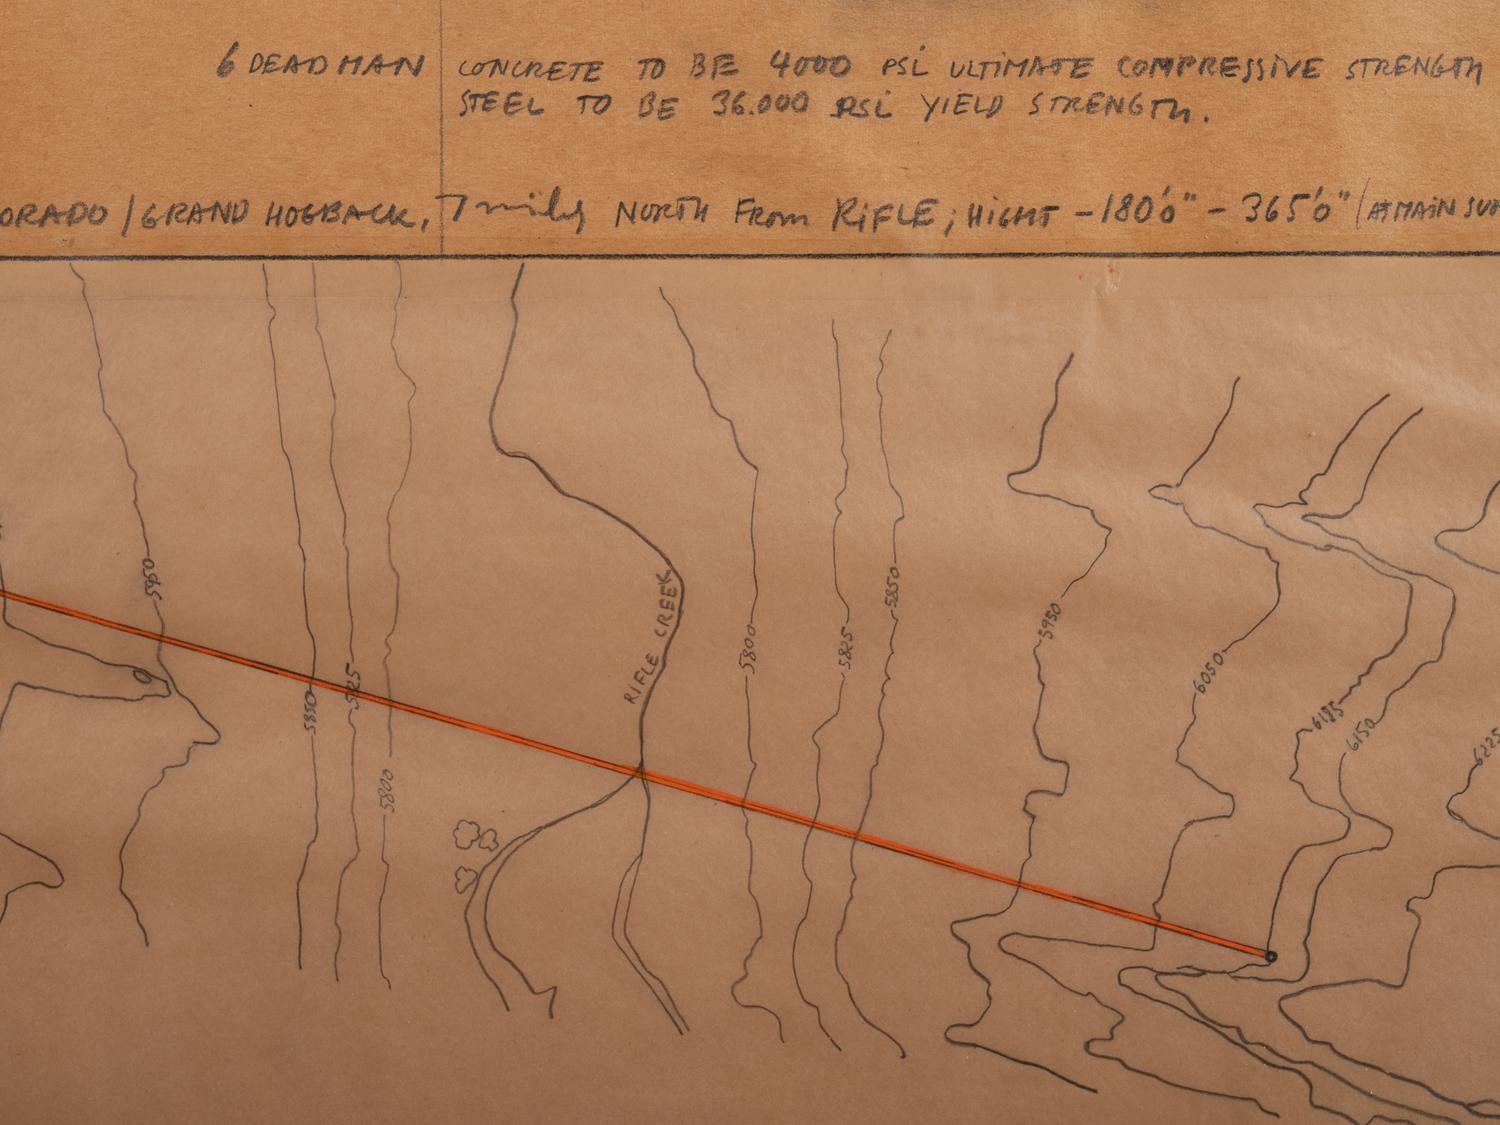 6 DEADMAN
CONCRETE TO BE 4000 PSi ULTiMATE COMPRESSiVE STRENGTH
STEEL TO BE 36.000 PSi YiELD STRENGTH.
ORADO / GRAND HOGBACK, 7 miles NORTH FROM RiFLE; HiGHT - 180'0" - 365'0" / AT MAiN
5950
5850
5800
RIFLE CREEK
5800
5825
5850
5950
6050
6150
6225